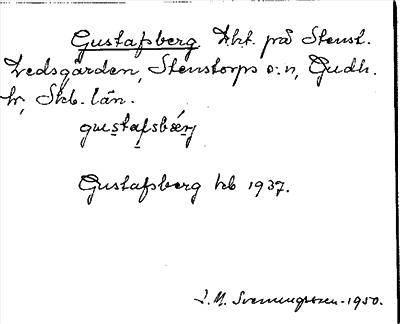 Gustafsberg Lht. på Stenst.
Ledsgården, Stenstorps s:n, Gudh.
hr, Skb. län.
gustafsbærj
Gustafsberg hb 1937.
1950.